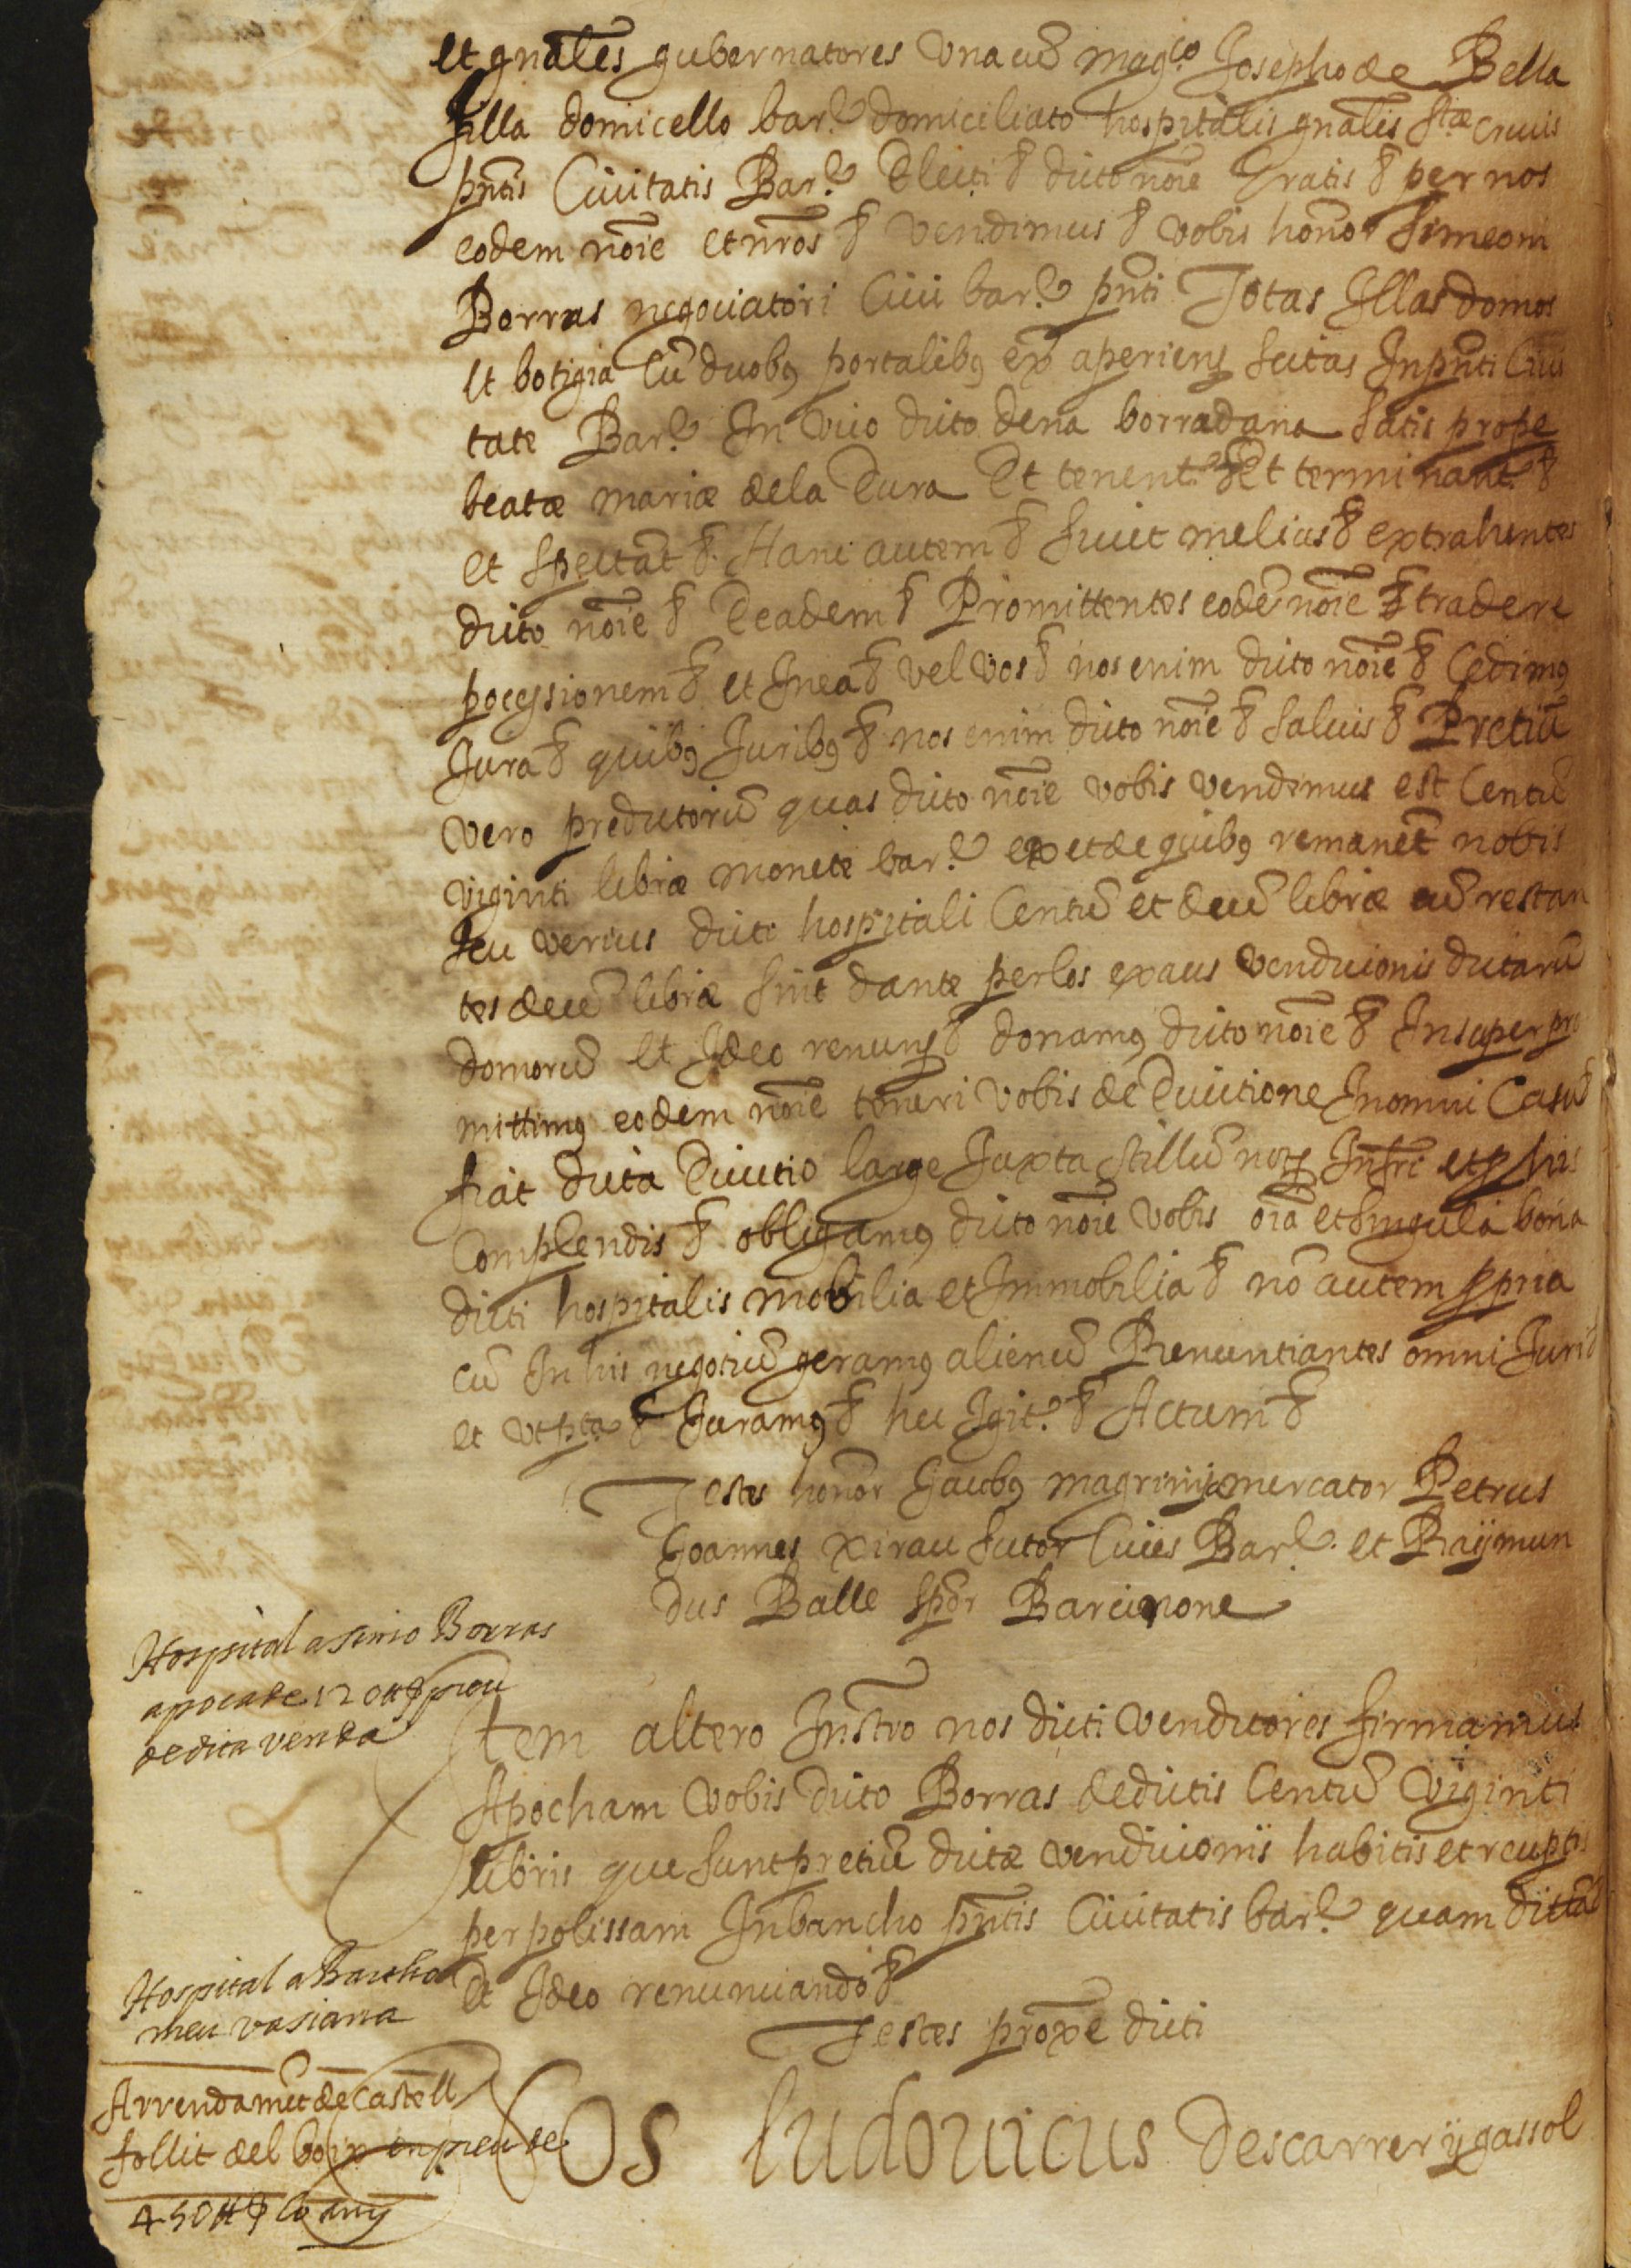 et gnāles gubernatores Vna cū magco Josepho de Bella
filla domicello bar.e domiciliato hospitalis gnālis stæ Crucis
pn̄tis Ciuitatis Bar.e Electi & dicto nōie Gratis & per nos
eodem nōie et nr̄os & Vendimus & vobis honor Simeoni
Borras negociatori Ciui bar.e pn̄ti Totas Illas domos
et botigia Cū duobꝯ portalibꝯ ex aperienꝭ scitas In pn̄ti Ciui
tate Bar.e In Vico dicto dena borradana satis prope
beatæ mariæ de la Cura Et tenent.r & Et terminant.r &
et spectāt & Hanc autem & sicut melius & extrahentes
dicto nōie & Eeadem & Promittentes eodē nōie & tradere
pocessionem & et In ea & vel vos & nos enim dicto nōie & Cedimꝯ
Jura & quibꝯ Juribꝯ & nos enim dicto nōie & saluis & Pretiū
vero predictorū quas dicto nōie vobis vendimus est Centū
viginti libræ monete bar.e ex et de quibꝯ remanēt nobis
seu verius dicti hospitali Centū et decē libræ cū restan
tes decē libræ sint dante per los exaus vendicionis dictarū
domorū et Ideo renunꝭ & donamꝯ dicto nōie & Insuper pro
mittimꝯ eodem nōie teneri vobis de Euictione In omni Casu &
fiat dicta Euictio large Juxta stillū notꝭ Infr̄i et ꝓ his
Complendis & obligamꝯ dicto nōie vobis oīa et singula bona
dicti hospitalis mobilia et Immobilia & nō autem ꝓpria
cū In his negotiū geramꝯ alienū Renuntiantes omni Juri &
et vt pta & Juramꝯ & hec Igit.r & Actum &
Testes honōr Jacobꝯ magrinya mercator Petrus
Joannes xirau sutor Ciues Bar.e et Raymun
dus Balle sp̄or Barcinone
Hospital a simo Borras
apoca de 120 ₶ ꝓ preu
de dita venda
Item altero Instr̄o nos dicti venditores firmamus
Apocham vobis dicto Borras de dictis Centū viginti
libris que sunt pretiū dictæ vendicionis habitis et receptis
per polissam In bancho pn̄tis Ciuitatis bar.e quam dictā
Et Ideo renunciando &
Testes proxe dicti
Hospital a Bartho
meu vasiana
Arrendamēt de Castell
follit del boix en preu de
450 ₶ ꝓ lo any
Nos ludouicus Descarrer y gassol